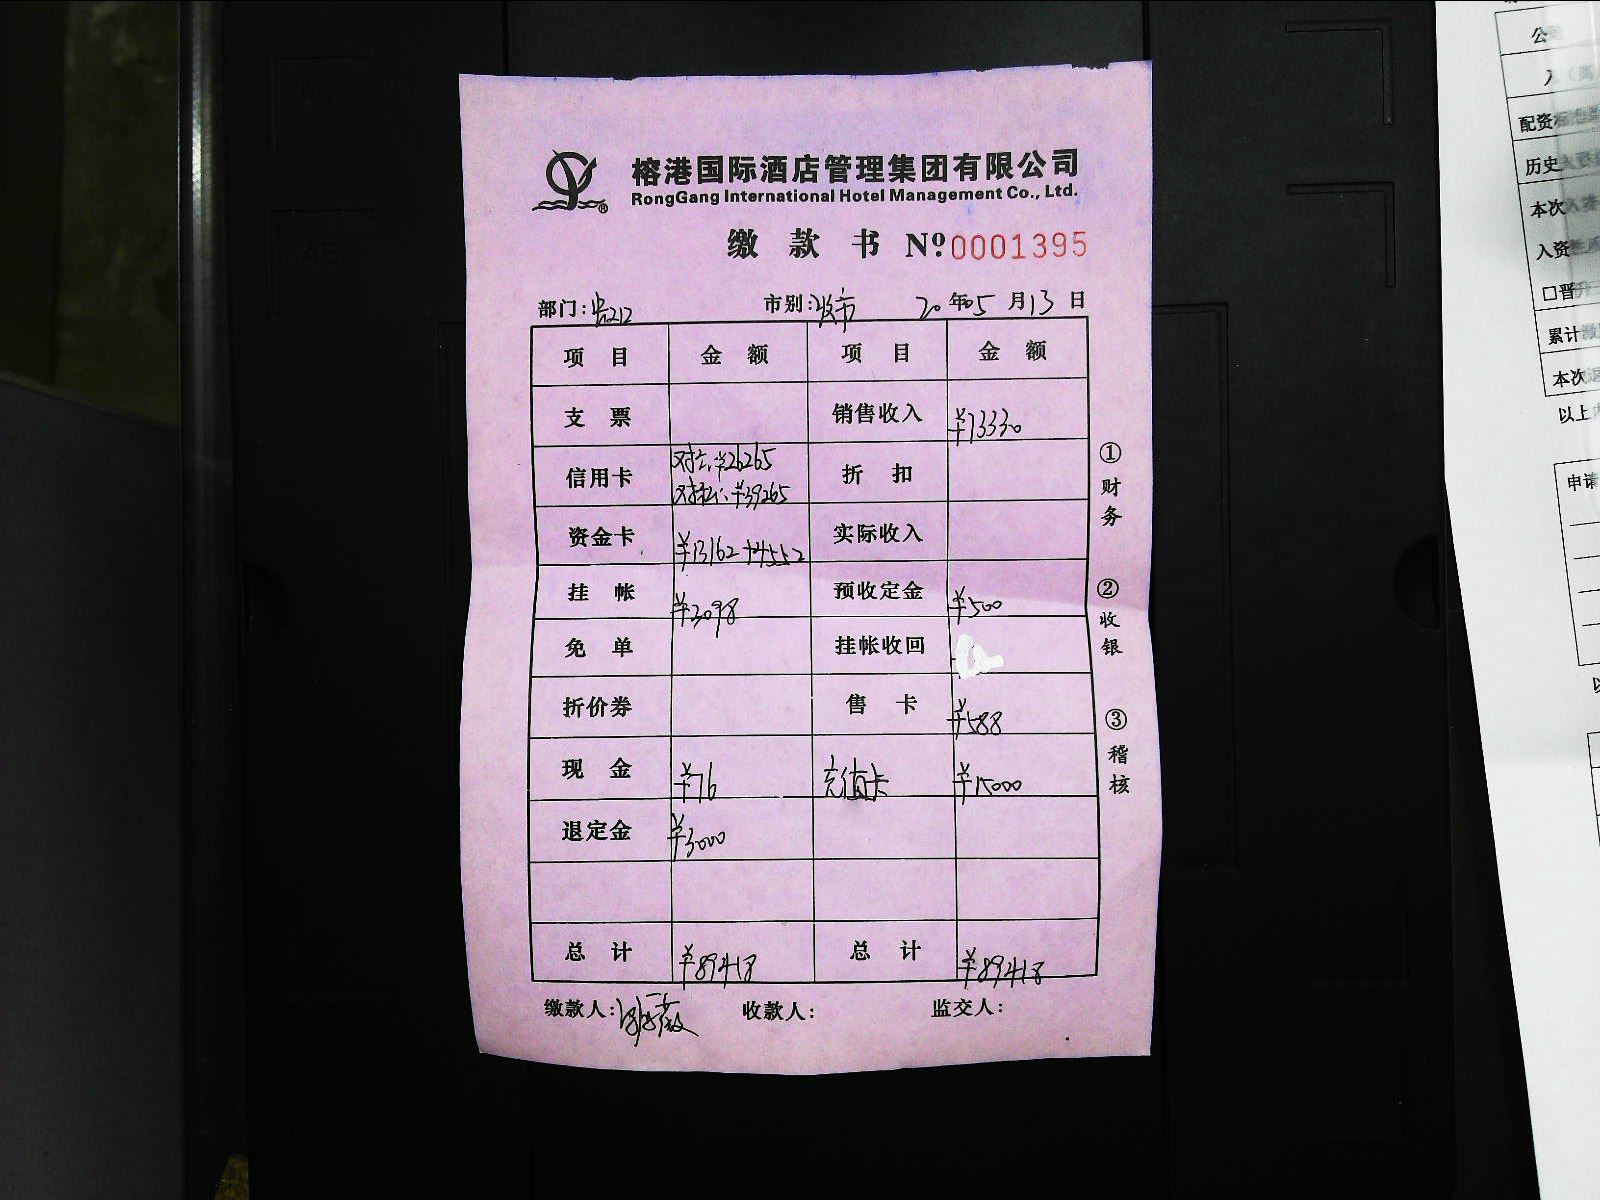 榕港国际酒店管理集团有限公司
RongGang International Hotel Management Co., Ltd.
缴款书 Nº.0001395
部门: 市别: 20年5月13日
项目 金额 项目 金额
支票 销售收入 ¥73330
信用卡 ¥26265 折扣
¥39265
资金卡 ¥13162+4552 实际收入
挂帐 ¥3098 预收定金 ¥500
免单 挂帐收回
折价券 售卡 ¥588
现金 ¥76 充值卡 ¥15000
退定金 ¥3000
总计 ¥89418 总计 ¥89418
缴款人: 收款人: 监交人:
①财务
②收银
③稽核
A4
A5
配资
历史
本次
入资
累计
本次
以上
申请